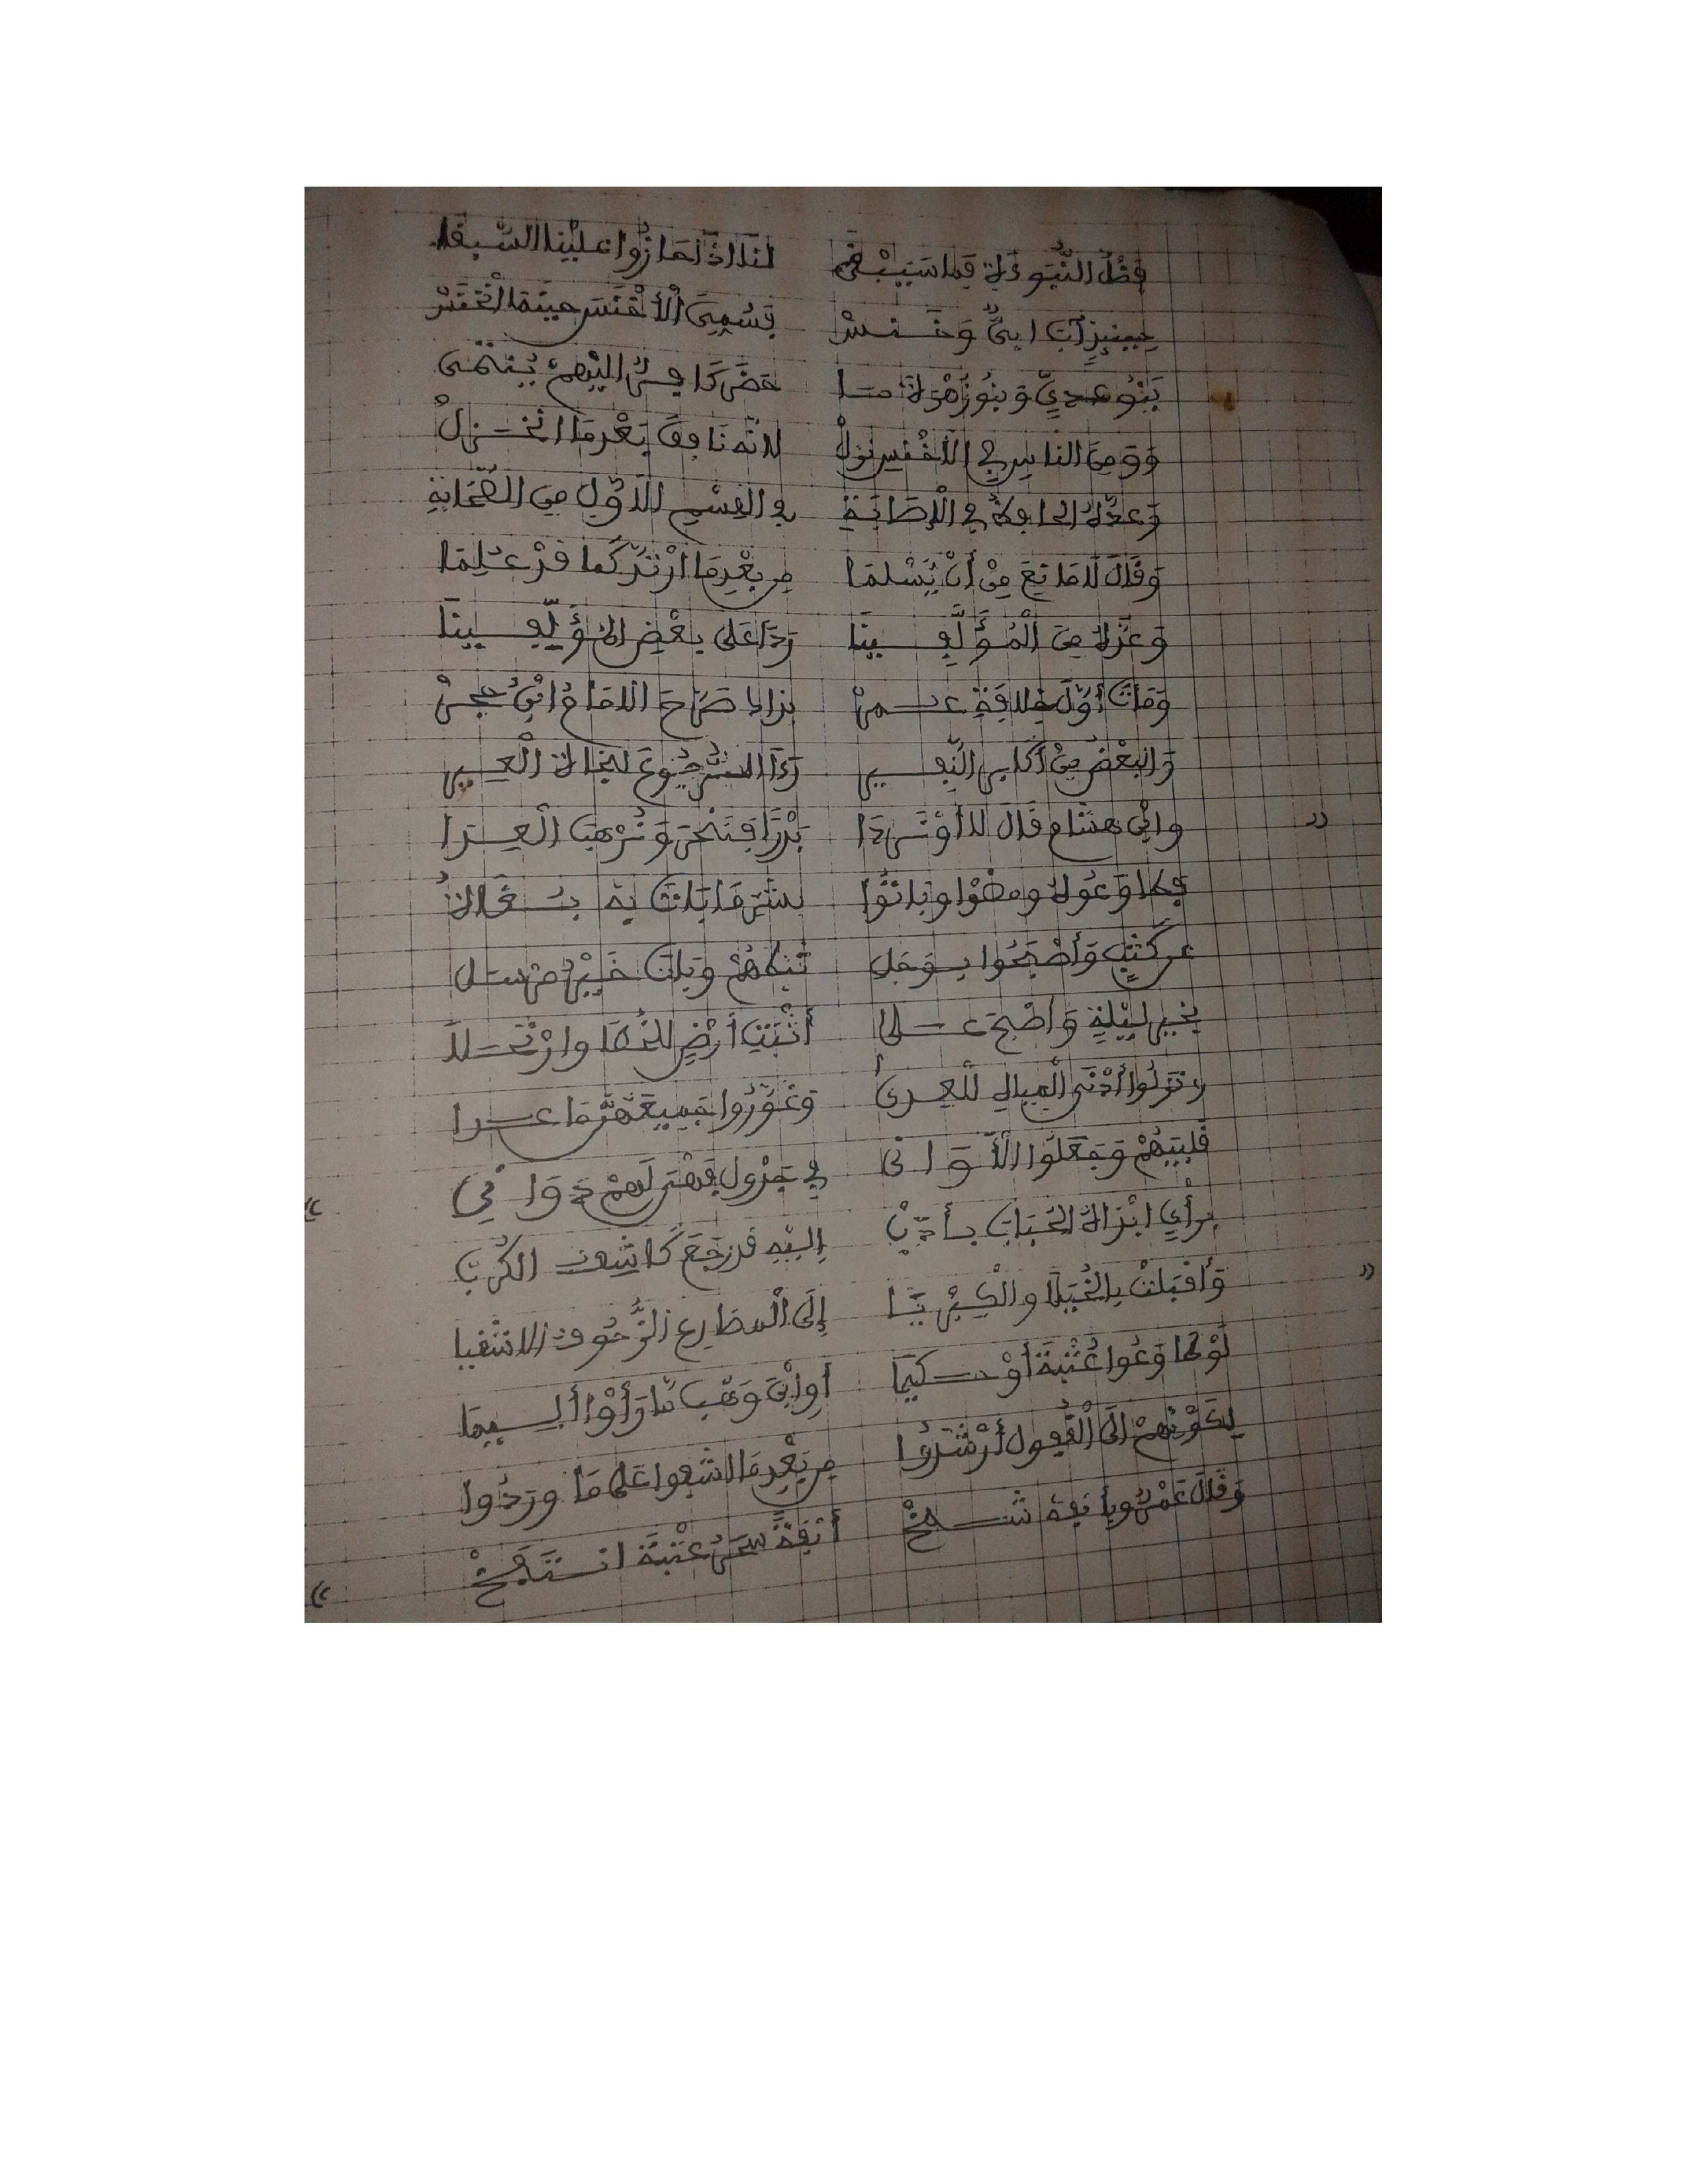 فضل النبوءة فما سيبقى لنا اذا حازوا علينا السبقا
حينئذ اب ابيٌّ وخنسْ فسمي الأخنس حينما انخنسْ
بنو عدي وبنو زهرة ما حضر كافرٌ اليهم ينتمى
ومن الناس في الأخنس نزلْ لانه نافق بعدما انخزلْ
وعده الحافظ في الإصابة في القسم الاول من الصحابة
وقال لا مانع من أن يسلما من بعدما ارتد كما قد علما
وعده من المؤلفينا ردا على بعض المؤلفينا
ومات أول خلافة عمرْ بذا صرح الامام ابن حجرْ
والبعض من أكابر النفير رءا الرجوع لنجاة العير
وابن هشام قال لا أو نردا بدرا فننحر ونرهب العدا
فطاوعوه ومضوا وباتوا بشر ما باتت به
عن كثب وأصبحوا بوجل تخطاهم وبات خير مرسل
بخير ليلة وأصبح على أثبت أرض للخطا وارتحلا
ونزلوا أدنى المياه للعدى وغوروا جميعهن ما عدا
قليبهم وجعلوا الأوانى في جدول فهنّ لهم دوانى
برأي ابن الحباب إليه قد رجع كاشف الكرب
وأقبلت بالخيلا والكبر يا إلى المصارع الاشقيا
لو طاوعوا عتبة أو حكيما أو ابن وهب ما رأوا أليما
لكونهم الى القفول أرشدوا من بعد ما اشفوا على ما وردوا
وقال عمرو بأنفه شمخْ أنفة سحر عتبة انتفخْ